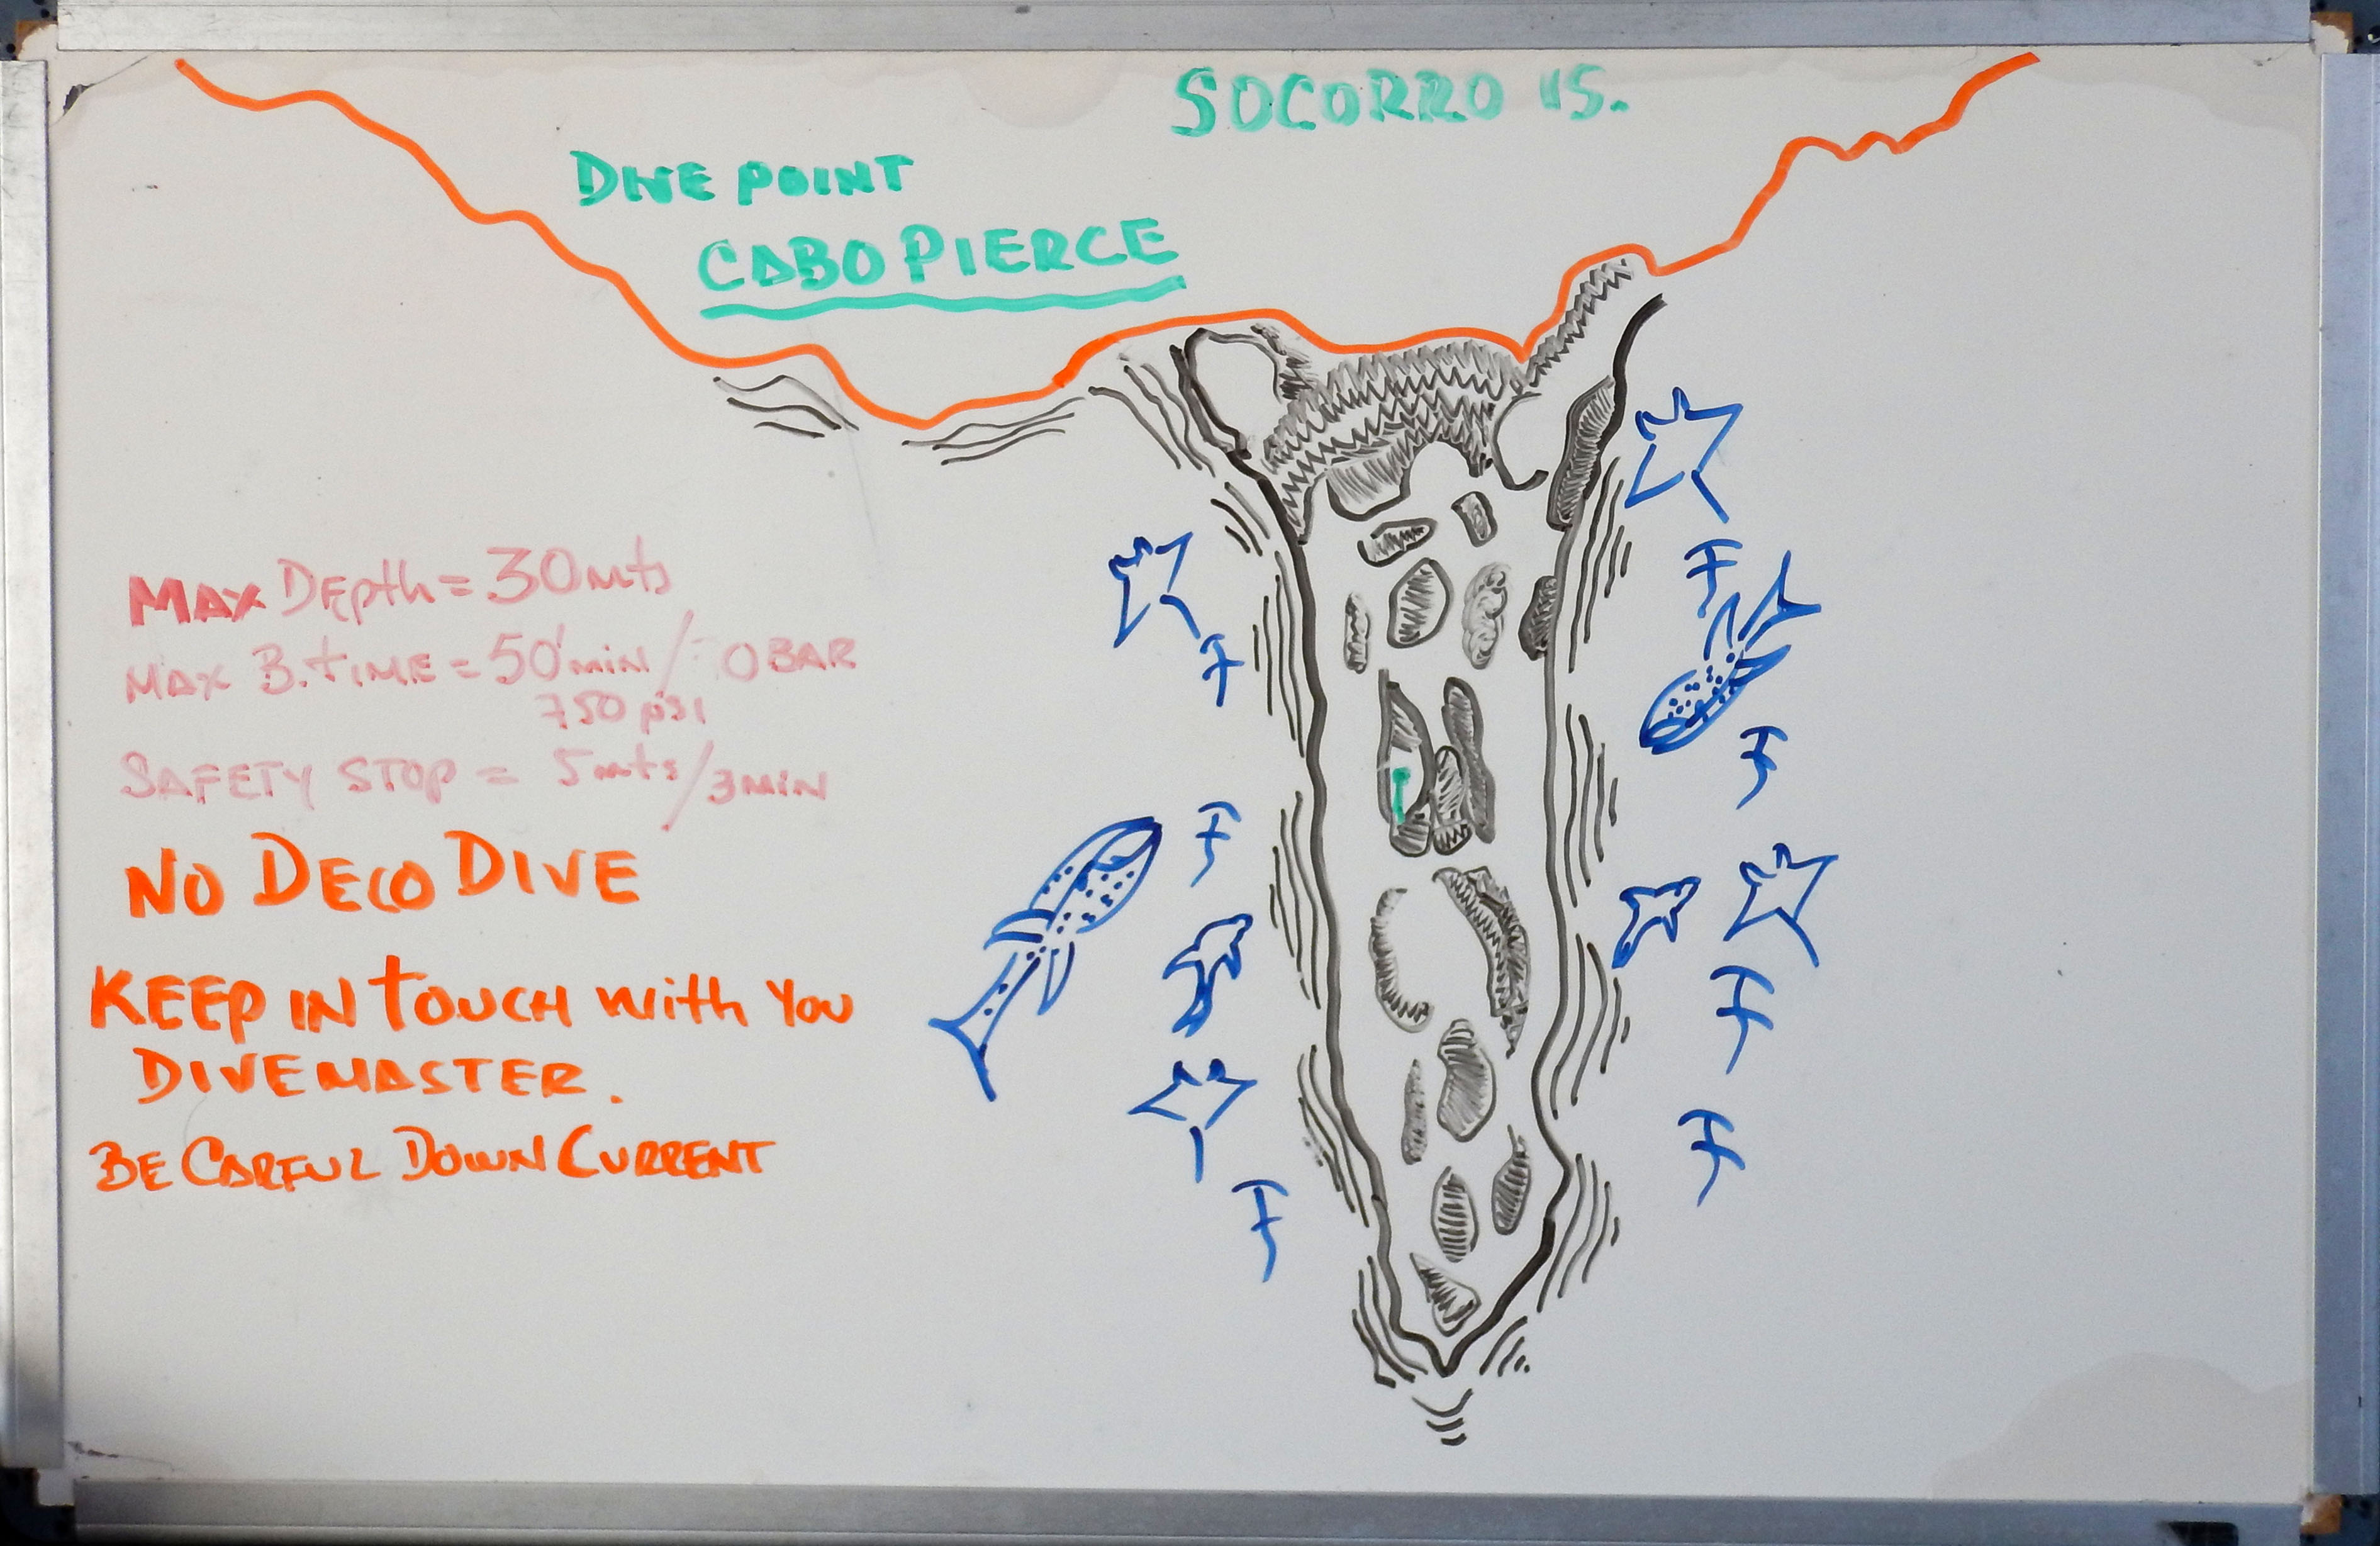 SOCORRO IS.
DIVE POINT
CABO PIERCE
MAX DEpth = 30mts
MAX B. tIME = 50'min / 0 BAR
750 psi
SAFETY STOP = 5mts / 3MIN
NO DECO DIVE
KEEP IN tOUCH with You
DIVEMASTER.
BE CAREFUL DOWN CURRENT